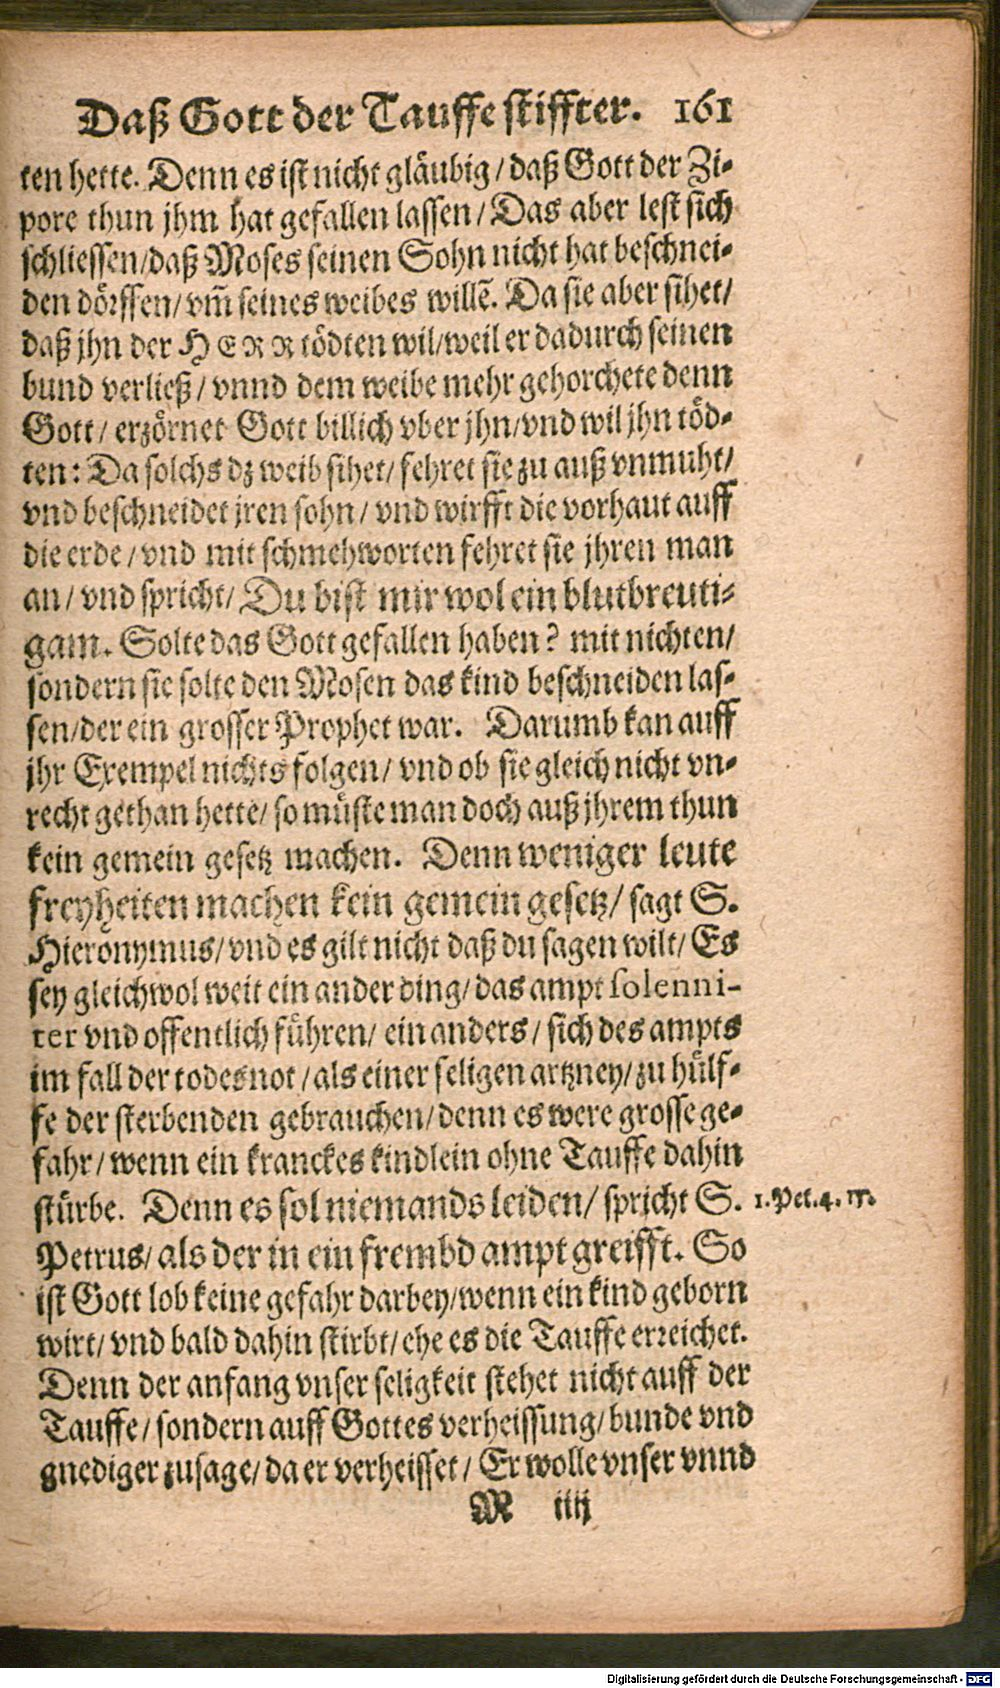 Daß Gott der Tauffe stiffter. 161
ten hette. Denn es ist nicht gläubig / daß Gott der Zi-
pore thun jhm hat gefallen lassen / Das aber lest sich
schliessen / daß Moses seinen Sohn nicht hat beschnei-
den dörffen / vm̃ seines weibes willẽ. Da sie aber sihet /
daß jhn der HERR tödten wil / weil er dadurch seinen
bund verließ / vnnd dem weibe mehr gehorchete denn
Gott / erzörnet Gott billich vber jhn / vnd wil jhn töd-
ten: Da solchs dz weib sihet / fehret sie zu auß vnmuht /
vnd beschneidet jren sohn / vnd wirfft die vorhaut auff
die erde / vnd mit schmehworten fehret sie jhren man
an / vnd spricht / Du bist mir wol ein blutbreuti-
gam. Solte das Gott gefallen haben? mit nichten /
sondern sie solte den Mosen das kind beschneiden las-
sen / der ein grosser Prophet war. Darumb kan auff
jhr Exempel nichts folgen / vnd ob sie gleich nicht vn-
recht gethan hette / so müste man doch auß jhrem thun
kein gemein gesetz machen. Denn weniger leute
freyheiten machen kein gemein gesetz / sagt S.
Hieronymus / vnd es gilt nicht daß du sagen wilt / Es
sey gleichwol weit ein ander ding / das ampt solenni-
ter vnd offentlich führen / ein anders / sich des ampts
im fall der todesnot / als einer seligen artzney / zu hülf-
fe der sterbenden gebrauchen / denn es were grosse ge-
fahr / wenn ein kranckes kindlein ohne Tauffe dahin
stürbe. Denn es sol niemands leiden / spricht S.
1. Pet. 4.
Petrus / als der in ein frembd ampt greifft. So
ist Gott lob keine gefahr darbey / wenn ein kind geborn
wirt / vnd bald dahin stirbt / ehe es die Tauffe erreichet.
Denn der anfang vnser seligkeit stehet nicht auff der
Tauffe / sondern auff Gottes verheissung / bunde vnd
gnediger zusage / da er verheisset / Er wolle vnser vnnd
M iiij
Digitalisierung gefördert durch die Deutsche Forschungsgemeinschaft - DFG